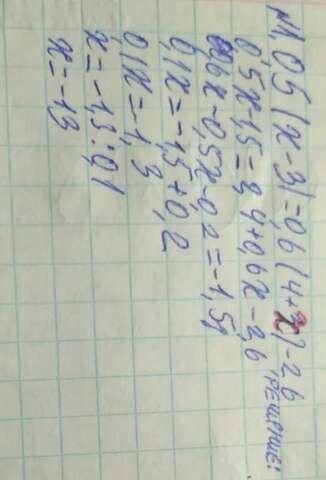 №1. 0,5(x-3)=0,6(4+x)-2,6 РЕШЕНИЕ:
0,5x-1,5=2,4+0,6x-2,6
0,6x-0,5x-0,2=-1,5
0,1x=-1,5+0,2
0,1x=-1,3
x=-1,3:0,1
x=-13